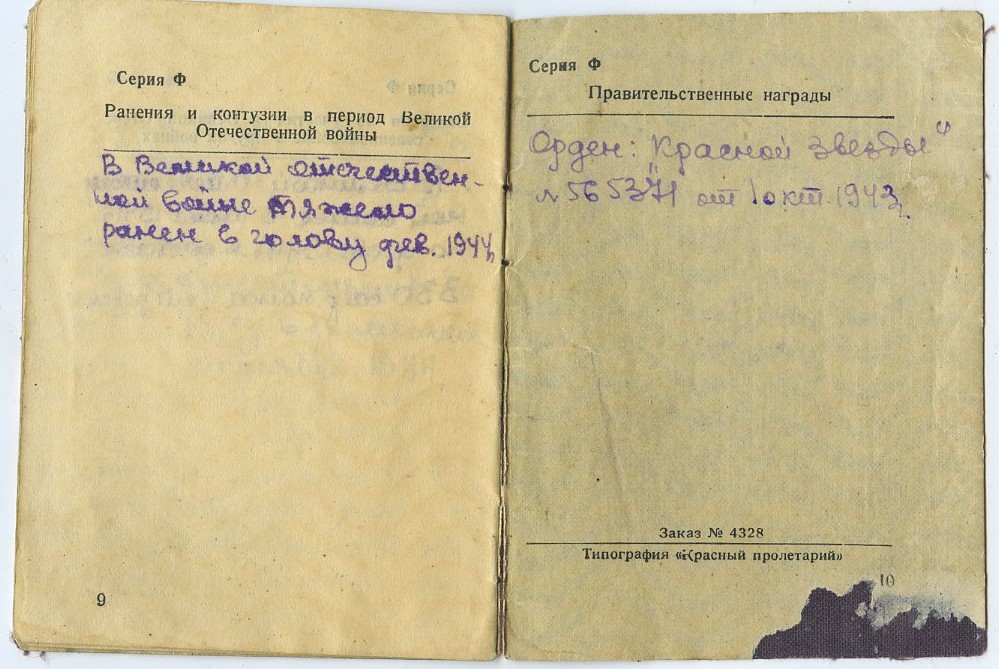 Серия Ф
Ранения и контузии в период Великой
Отечественной войны
В Великой отечествен-
ной войне тяжело
ранен в голову фев. 1944
9
Серия Ф
Правительственные награды
Орден: "Красной звезды"
№ 565371 от 1 окт. 1943
Заказ № 4328
Типография «Красный пролетарий»
10